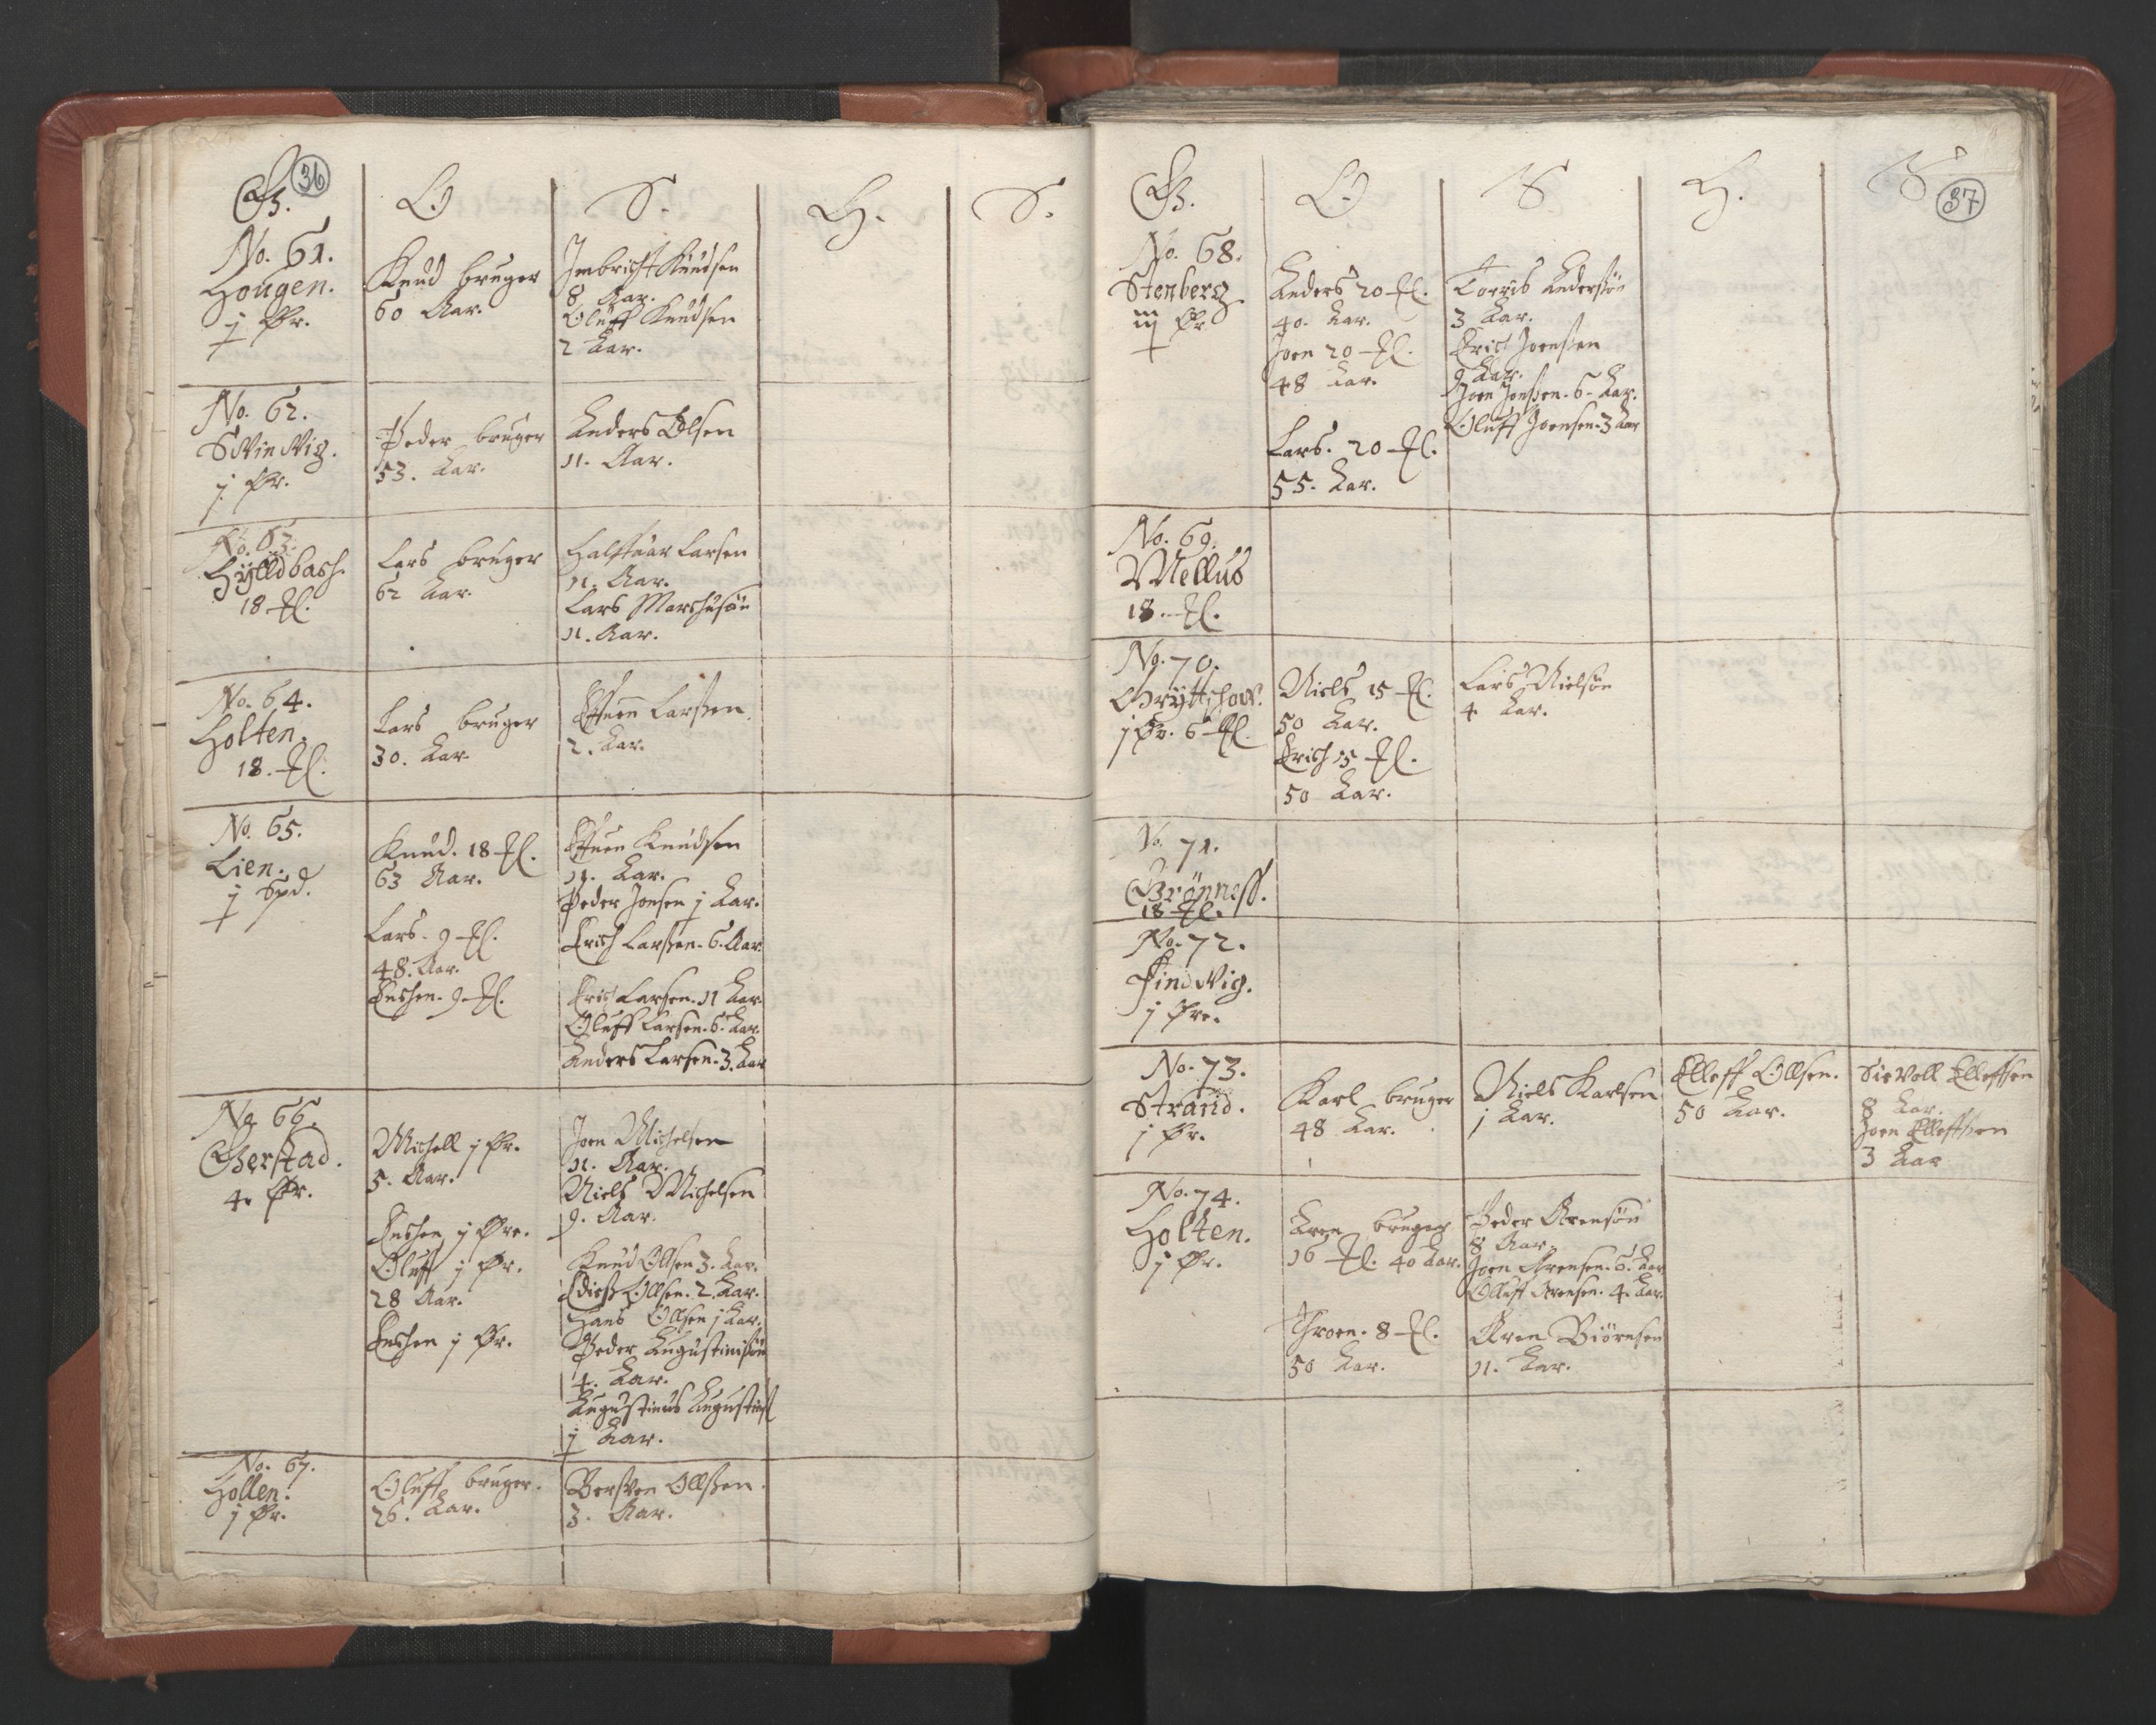 36
G. O S. H. S.
No. 61.
Hougen.
j Ør.
Knud bruger
60 Aar.
Imbricht Knudsen
8 Aar.
Oluff Knudsen
2 Aar.
No. 62.
Svinvig.
j Ør.
Peder bruger
53. Aar.
Anders Olsen
11. Aar.
No. 63.
Hylldbach.
18 Ml.
Lars bruger
62 Aar.
Halffuar Larsen
11. Aar.
Lars Marchusøn
11. Aar.
No. 64.
Holten.
18. Ml.
Lars bruger
30. Aar.
Effuen Larsen
2. Aar.
No. 65.
Lien.
j Spd.
Knud. 18 Ml.
63 Aar.
Lars. 9 Ml.
48. Aar.
Enchen. 9 Ml.
Effuen Knudsen
11. Aar.
Peder Jonsen j Aar.
Erich Larsen. 6. Aar.
Erich Larsen. 11 Aar.
Oluff Larsen. 6. Aar.
Anders Larsen. 3. Aar
No 66.
Gierstad.
4. Ør.
Michell j Ør.
5. Aar.
Enchen j Øre.
Oluff j Ør.
28 Aar.
Enchen j Ør.
Joen Michelsen
11. Aar.
Niels Michelsen
9. Aar.
Knud Ollsen 3. Aar.
Ollsen. 2. Aar.
Hans Ollsen j Aar.
Peder Augustinisøn
4. Aar.
Augustinus
j Aar.
No. 67.
Hollen.
j Ør.
Oluff bruger.
26. Aar.
Ollsen.
3. Aar.
37
G. O. S H. S
No. 68.
Stenberg.
iij Ør
Anders 20 Ml.
40. Aar.
Joen 20 Ml.
48 Aar.
Lars. 20 Ml.
55. Aar.
Torris Andersøn
3 Aar.
Erich Joensen
9 Aar.
Joen Jonsen. 6. Aar.
Oluff Joensen. 3 Aar
No. 69.
Mellus
18. Ml.
No. 70.
j Ør. 6 Ml.
Niels 15 Ml.
50 Aar.
Erich 15 Ml.
50 Aar.
Lars Nielsøn
4 Aar.
No. 71.
Grønness.
18 Ml.
No. 72.
Findvig.
j Øre.
No. 73.
Strand.
j Ør.
Karl bruger
48 Aar.
Niels Karlsen
j Aar.
Elleff Ollsen.
50 Aar.
Sievoll Elleffsen
8 Aar.
Joen Elleffsen
3 Aar
No. 74.
Holten.
j Ør.
Aren bruger
16 Ml. 40 Aar.
Throen. 8 Ml.
50 Aar.
Peder Arensøn
8 Aar.
Joen Arensen. 6. Aar
Oluff Arensen. 4. Aar.
Aren Biørnsen
11. Aar.